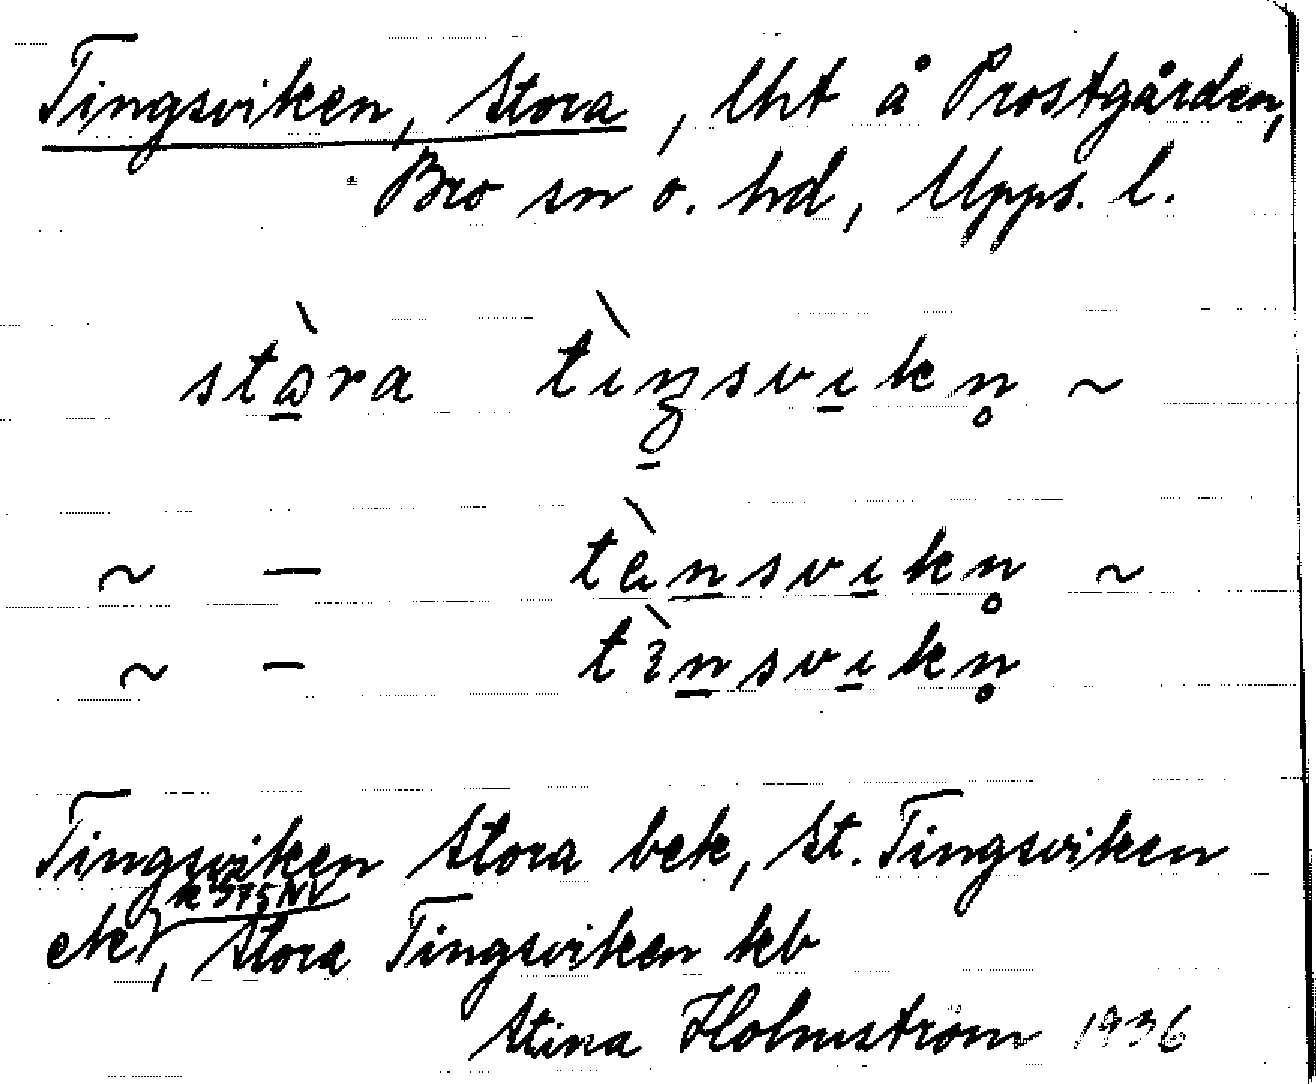 Tingsviken, Stora, lht å Prostgården,
Bro sn o. hd, Upps. l.
stɷ̀ra tìŋsvikn̥ ~
~ — tènsvikn̥ ~
~ — tìnsvikn̥
Tingsviken Stora bek, St. Tingsviken
k 375 NV
ek, Stora Tingsviken kb
Stina Holmström 1936